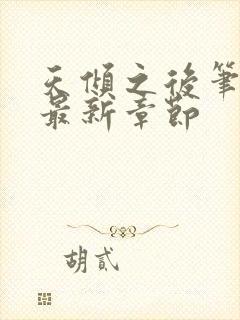 天倾之後筆
最新章節
胡貳